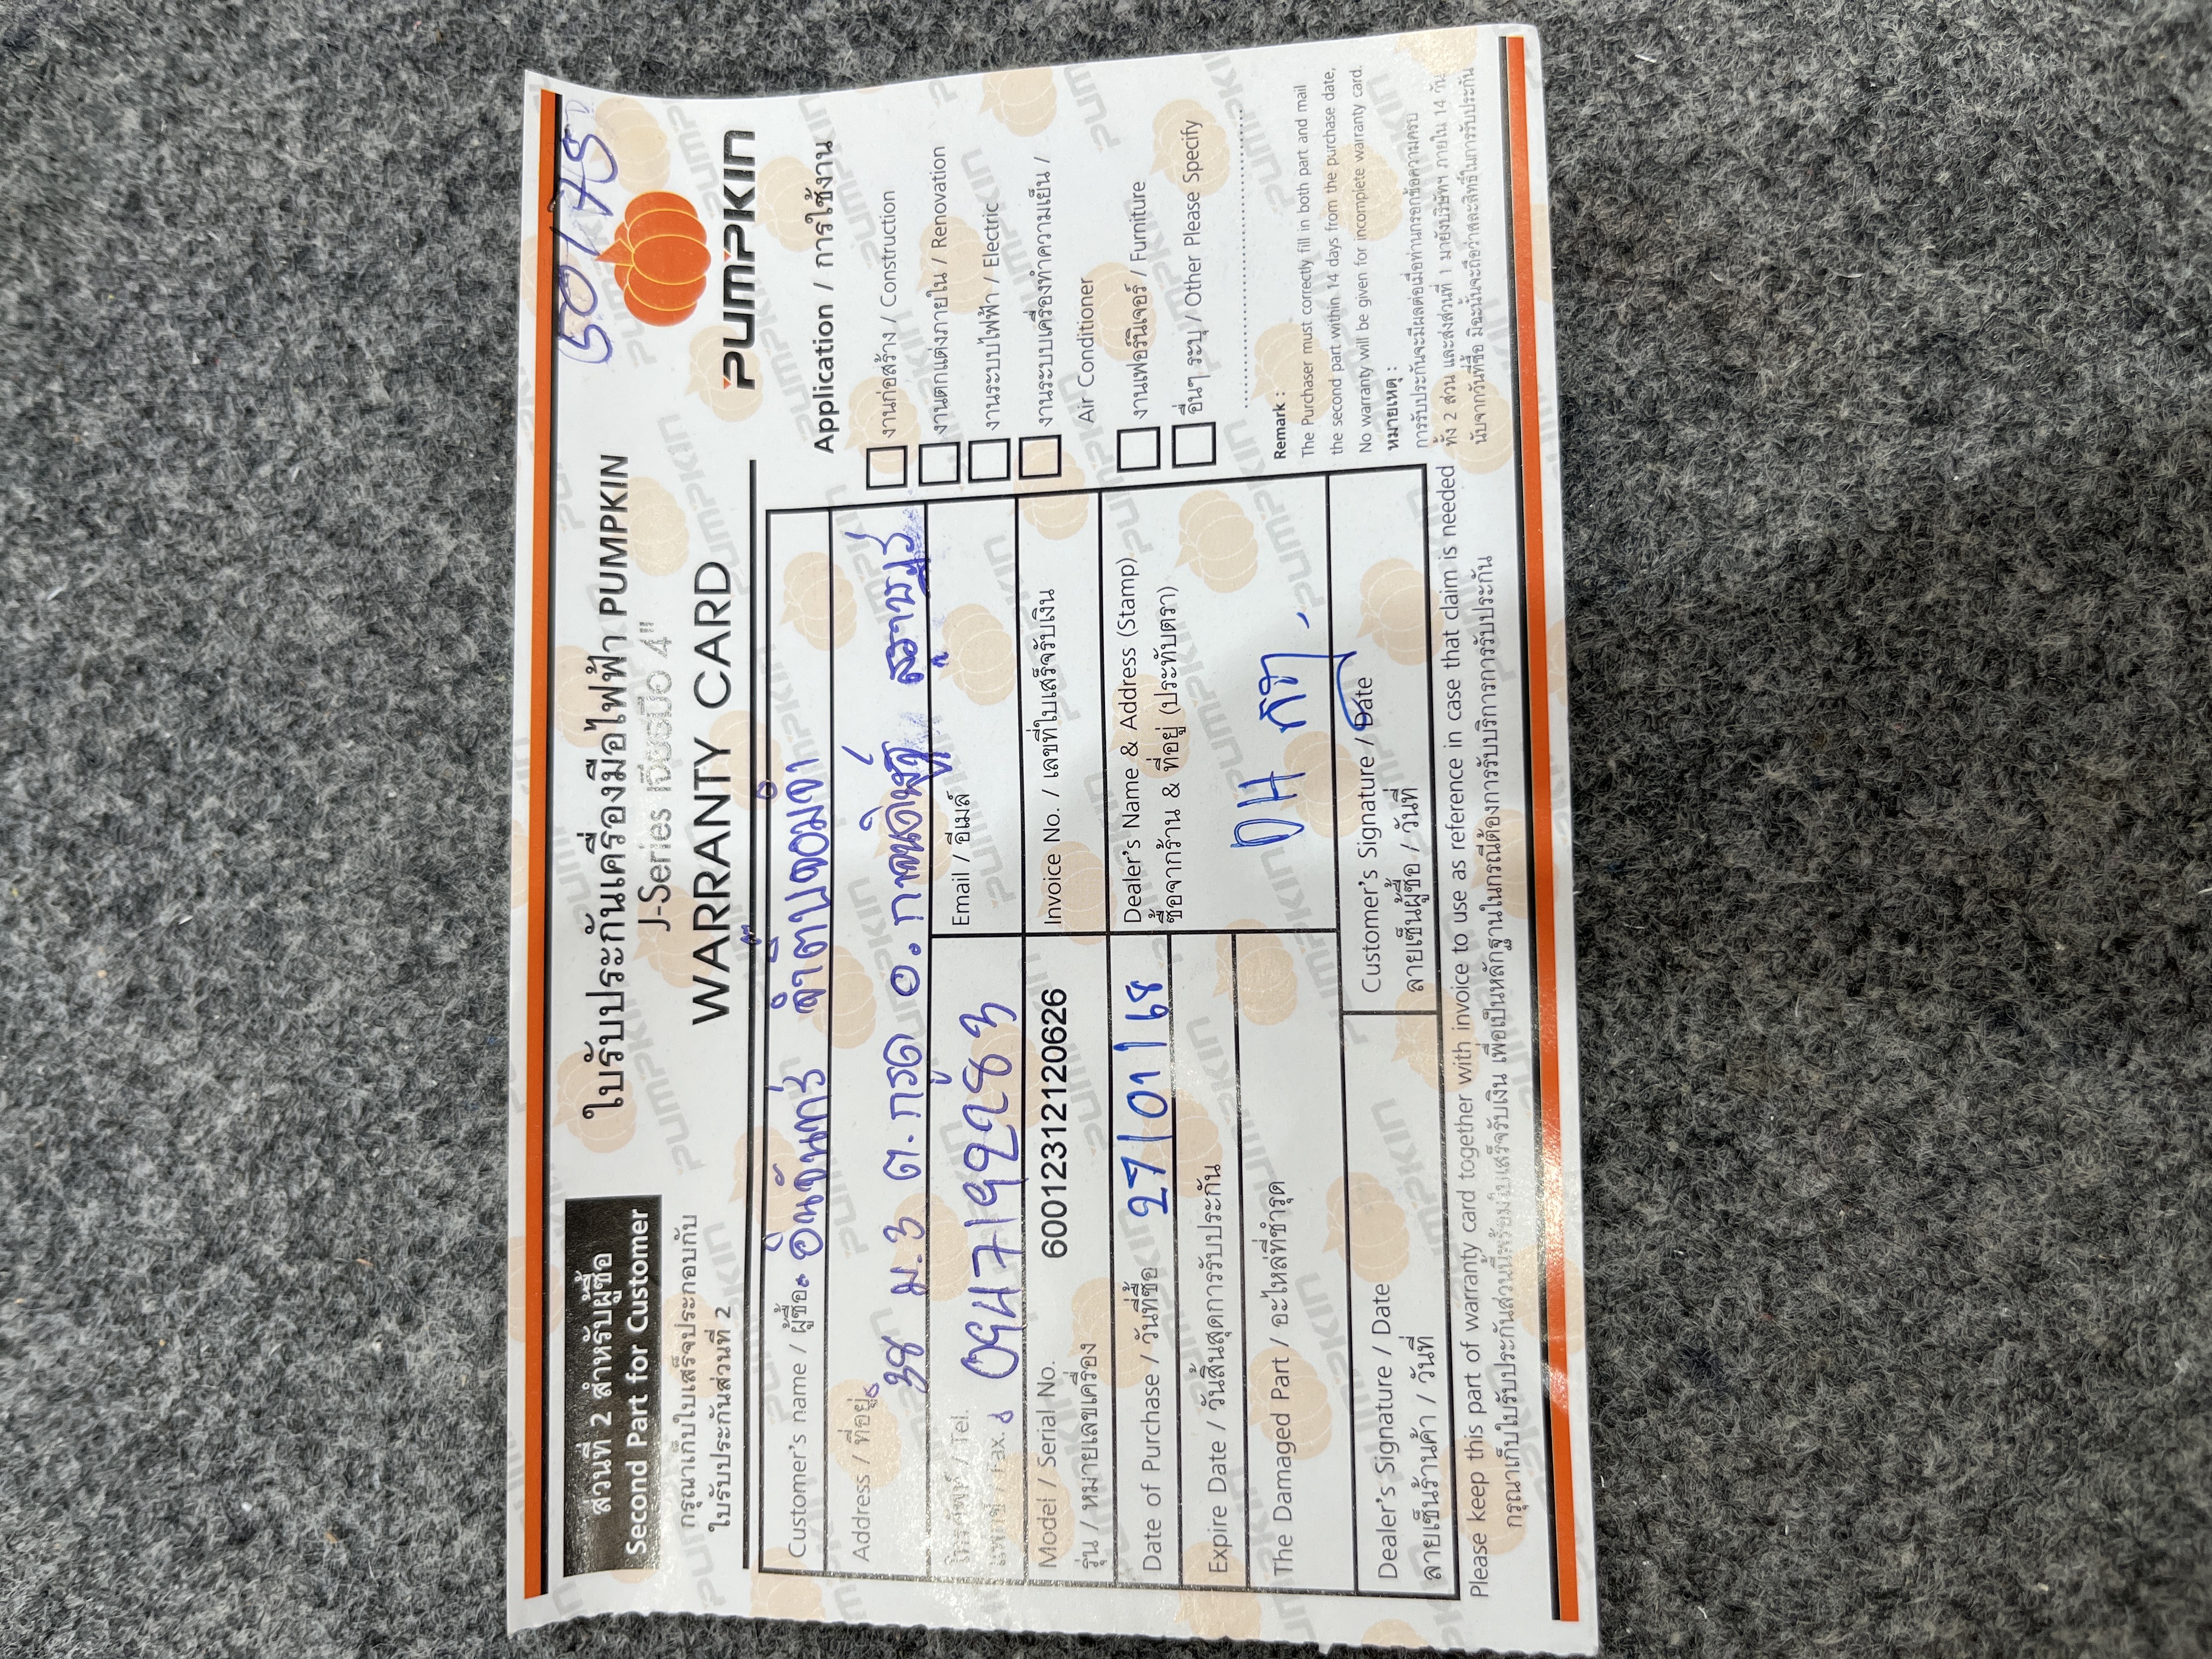 50175
ส่วนที่ 2 สำหรับผู้ซื้อ
Second Part for Customer
กรุณาเก็บใบเสร็จประกอบกับ
ใบรับประกันส่วนที่ 2
ใบรับประกันเครื่องมือไฟฟ้า PUMPKIN
J-Series เจียรมือ 4"
WARRANTY CARD
PUMPKIN
Customer's name / ผู้ซื้อ
Address / ที่อยู่ 38 ม.3 ต.กรูด อ.กาญจนดิษฐ์ สุราษฎร์
โทรศัพท์ / Tel.
แฟกซ์ / Fax. 0947192283
Email / อีเมล์
Model / Serial No. 6001231212120626
รุ่น / หมายเลขเครื่อง
Invoice No. / เลขที่ใบเสร็จรับเงิน
Date of Purchase / วันที่ซื้อ 27/01/68
Expire Date / วันสิ้นสุดการรับประกัน
The Damaged Part / อะไหล่ที่ชำรุด
Dealer's Name & Address (Stamp)
ซื้อจากร้าน & ที่อยู่ (ประทับตรา)
DH
Dealer's Signature / Date
ลายเซ็นร้านค้า / วันที่
Customer's Signature / Date
ลายเซ็นผู้ซื้อ / วันที่
Application / การใช้งาน
งานก่อสร้าง / Construction
งานตกแต่งภายใน / Renovation
งานระบบไฟฟ้า / Electric
งานระบบเครื่องทำความเย็น /
Air Conditioner
งานเฟอร์นิเจอร์ / Furniture
อื่นๆ ระบุ / Other Please Specify
Remark :
The Purchaser must correctly fill in both part and mail
the second part within 14 days from the purchase date,
No warranty will be given for incomplete warranty card.
หมายเหตุ :
การรับประกันจะมีผลต่อเมื่อท่านกรอกข้อความครบ
ทั้ง 2 ส่วน และส่งส่วนที่ 1 มายังบริษัทฯ ภายใน 14 วัน
นับจากวันที่ซื้อ มิฉะนั้นจะถือว่าสละสิทธิ์ในการรับประกัน
Please keep this part of warranty card together with invoice to use as reference in case that claim is needed
กรุณาเก็บใบรับประกันส่วนนี้พร้อมใบเสร็จรับเงิน เพื่อเป็นหลักฐานในกรณีต้องการรับบริการการรับประกัน